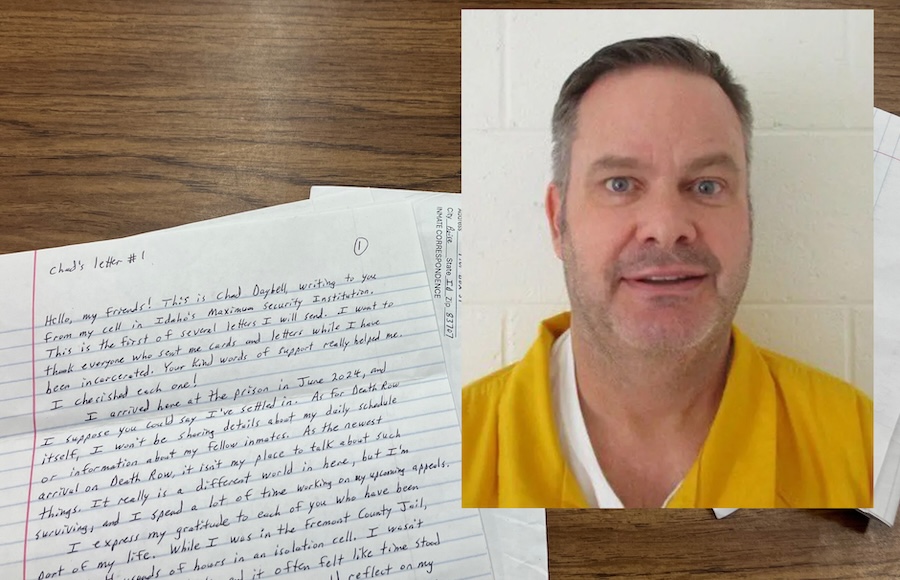 Chad's letter #1
①
Hello, my friends! This is Chad Daybell writing to you
from my cell in Idaho's Maximum Security Institution.
This is the first of several letters I will send. I want to
thank everyone who sent me cards and letters while I have
been incarcerated. Your kind words of support really helped me.
I cherished each one!
I arrived here at the prison in June 2024, and
I suppose you could say I've settled in. As for Death Row
itself, I won't be sharing details about my daily schedule
or information about my fellow inmates. As the newest
arrival on Death Row, it isn't my place to talk about such
things. It really is a different world in here, but I'm
surviving, and I spend a lot of time working on my upcoming appeals.
I express my gratitude to each of you who have been
part of my life. While I was in the Fremont County Jail,
thousands of hours in an isolation cell. I wasn't
and it often felt like time stood
reflect on my
City Boise State Id Zip 83707
INMATE CORRESPONDENCE